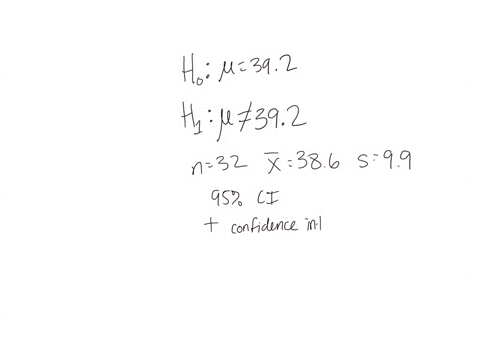 H₀: μ=39.2
H₁: μ≠39.2
n=32 x̄=38.6 s=9.9
95% CI
+ confidence int